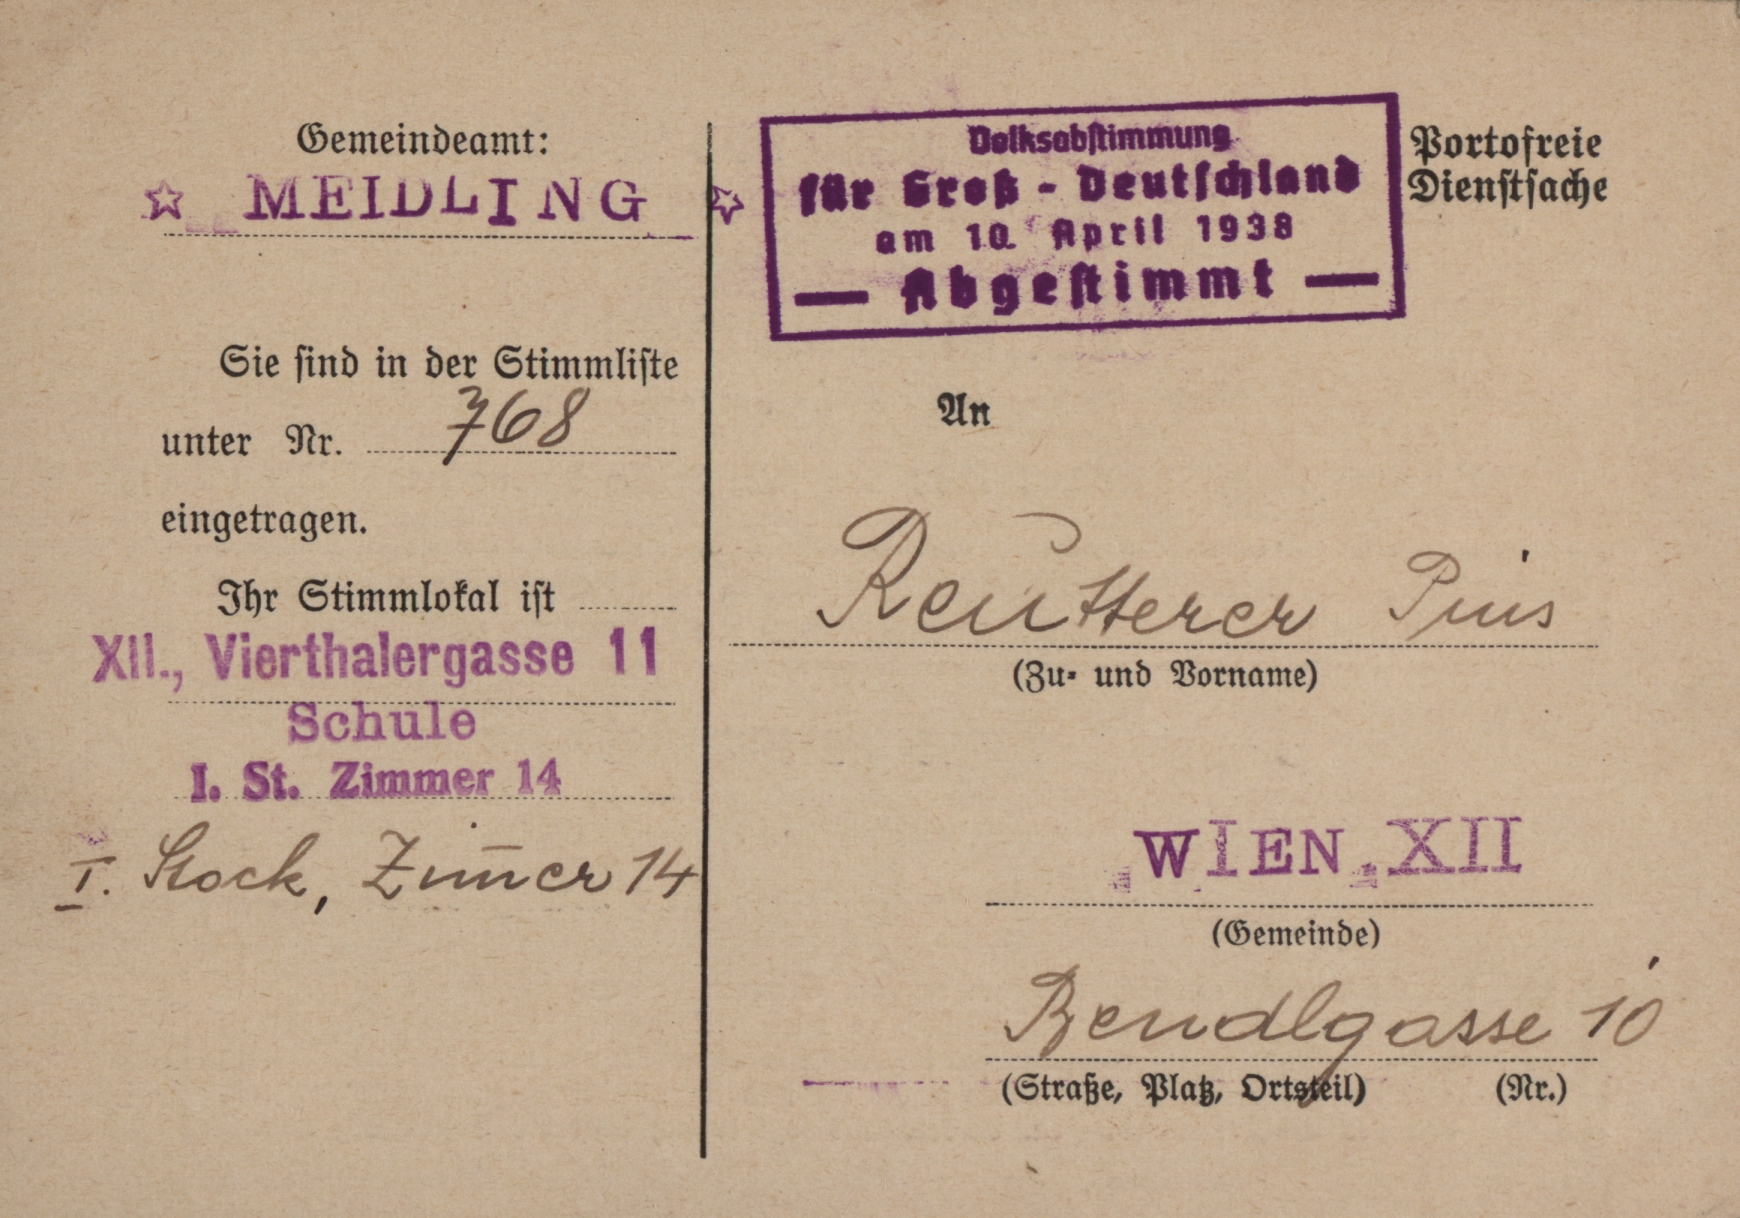 Gemeindeamt:
☆ MEIDLING ☆
Sie sind in der Stimmliste
unter Nr. 768
eingetragen.
Ihr Stimmlokal ist
XII., Vierthalergasse 11
Schule
I. St. Zimmer 14
I. Stock, Zim̄er 14
Volksabstimmung
für Groß-Deutschland
am 10. April 1938
— Abgestimmt —
Portofreie
Dienstsache
An
Reutterer Pius
(Zu- und Vorname)
WIEN, XII
(Gemeinde)
Bendlgasse 10
(Straße, Platz, Ortsteil) (Nr.)